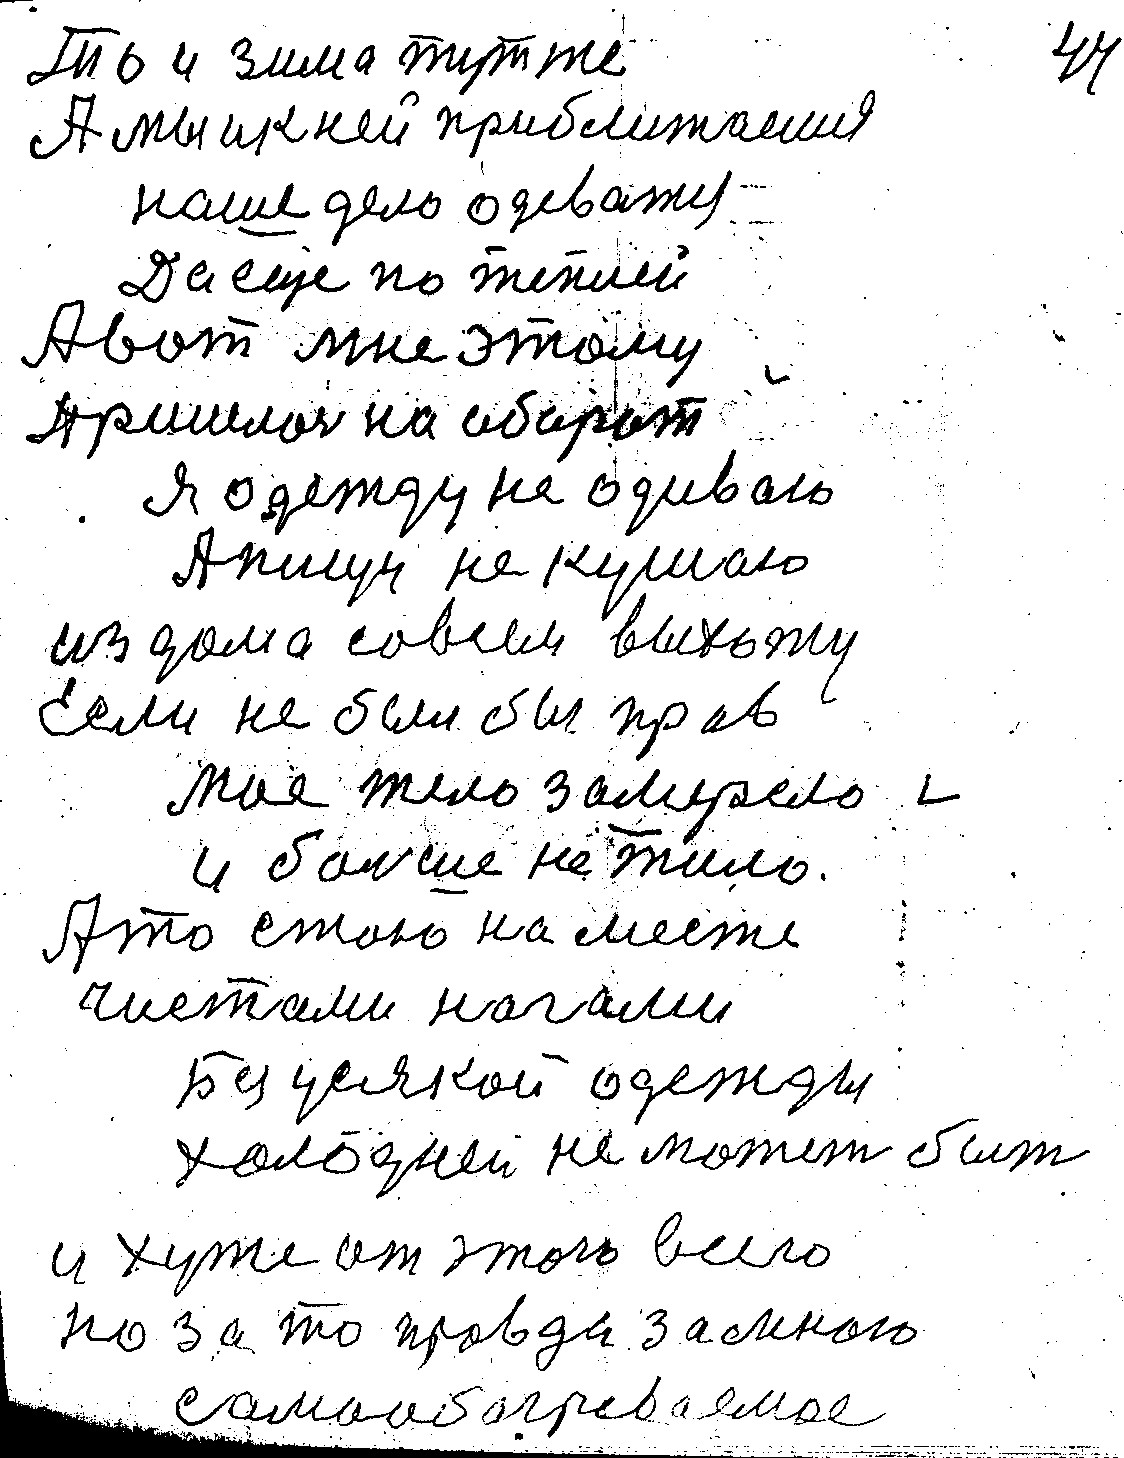 44
То и зима тутже
А мы и к ней приближаемся
наше дело одеважу
Да еще по теплей
А вот мне этому
пришлось на оборот
Я одежду не одиваю
А пищу не кушаю
из дома совсем выхожу
Если не был бы прав
мое тело замерзло
и больше не жило.
А то стою на месте
чистами ногами
Без усякой одежды
холодней не может быт
и хуже от этого всего
но за то правда за мною
самообогреваемое